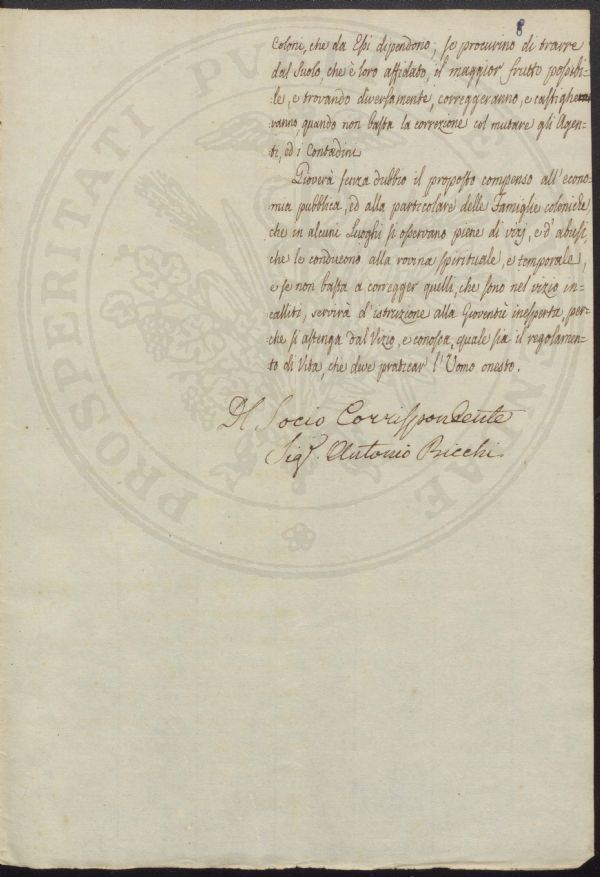 8
Coloni, che da Essi dipendono, se procurino di trarre
dal Suolo, che è loro affidato, il maggior frutto possibi-
le, e trovando diversamente, correggeranno, e castighe
ranno, quando non basta la correzione col mutare gli Agen-
ti, ed i Contadini
Gioverà senza dubbio il proposto compenso all'econo-
mia pubblica, ed alla particolare delle Famiglie coloniche,
che in alcuni Luoghi si osservano piene di vizj, e d'abusi,
che le conducono alla rovina spirituale, e temporale,
e se non basta a corregger quelli, che sono nel vizio in-
calliti, servirà d'istruzione alla Gioventù inesperta, per-
che si astenga dal Vizio, e conosca, quale sia il regolamen-
to di Vita, che deve praticar l'Uomo onesto.
Del Socio Corrispondente
Sigr. Antonio Bicchi
PROSPERITATI PU
AE